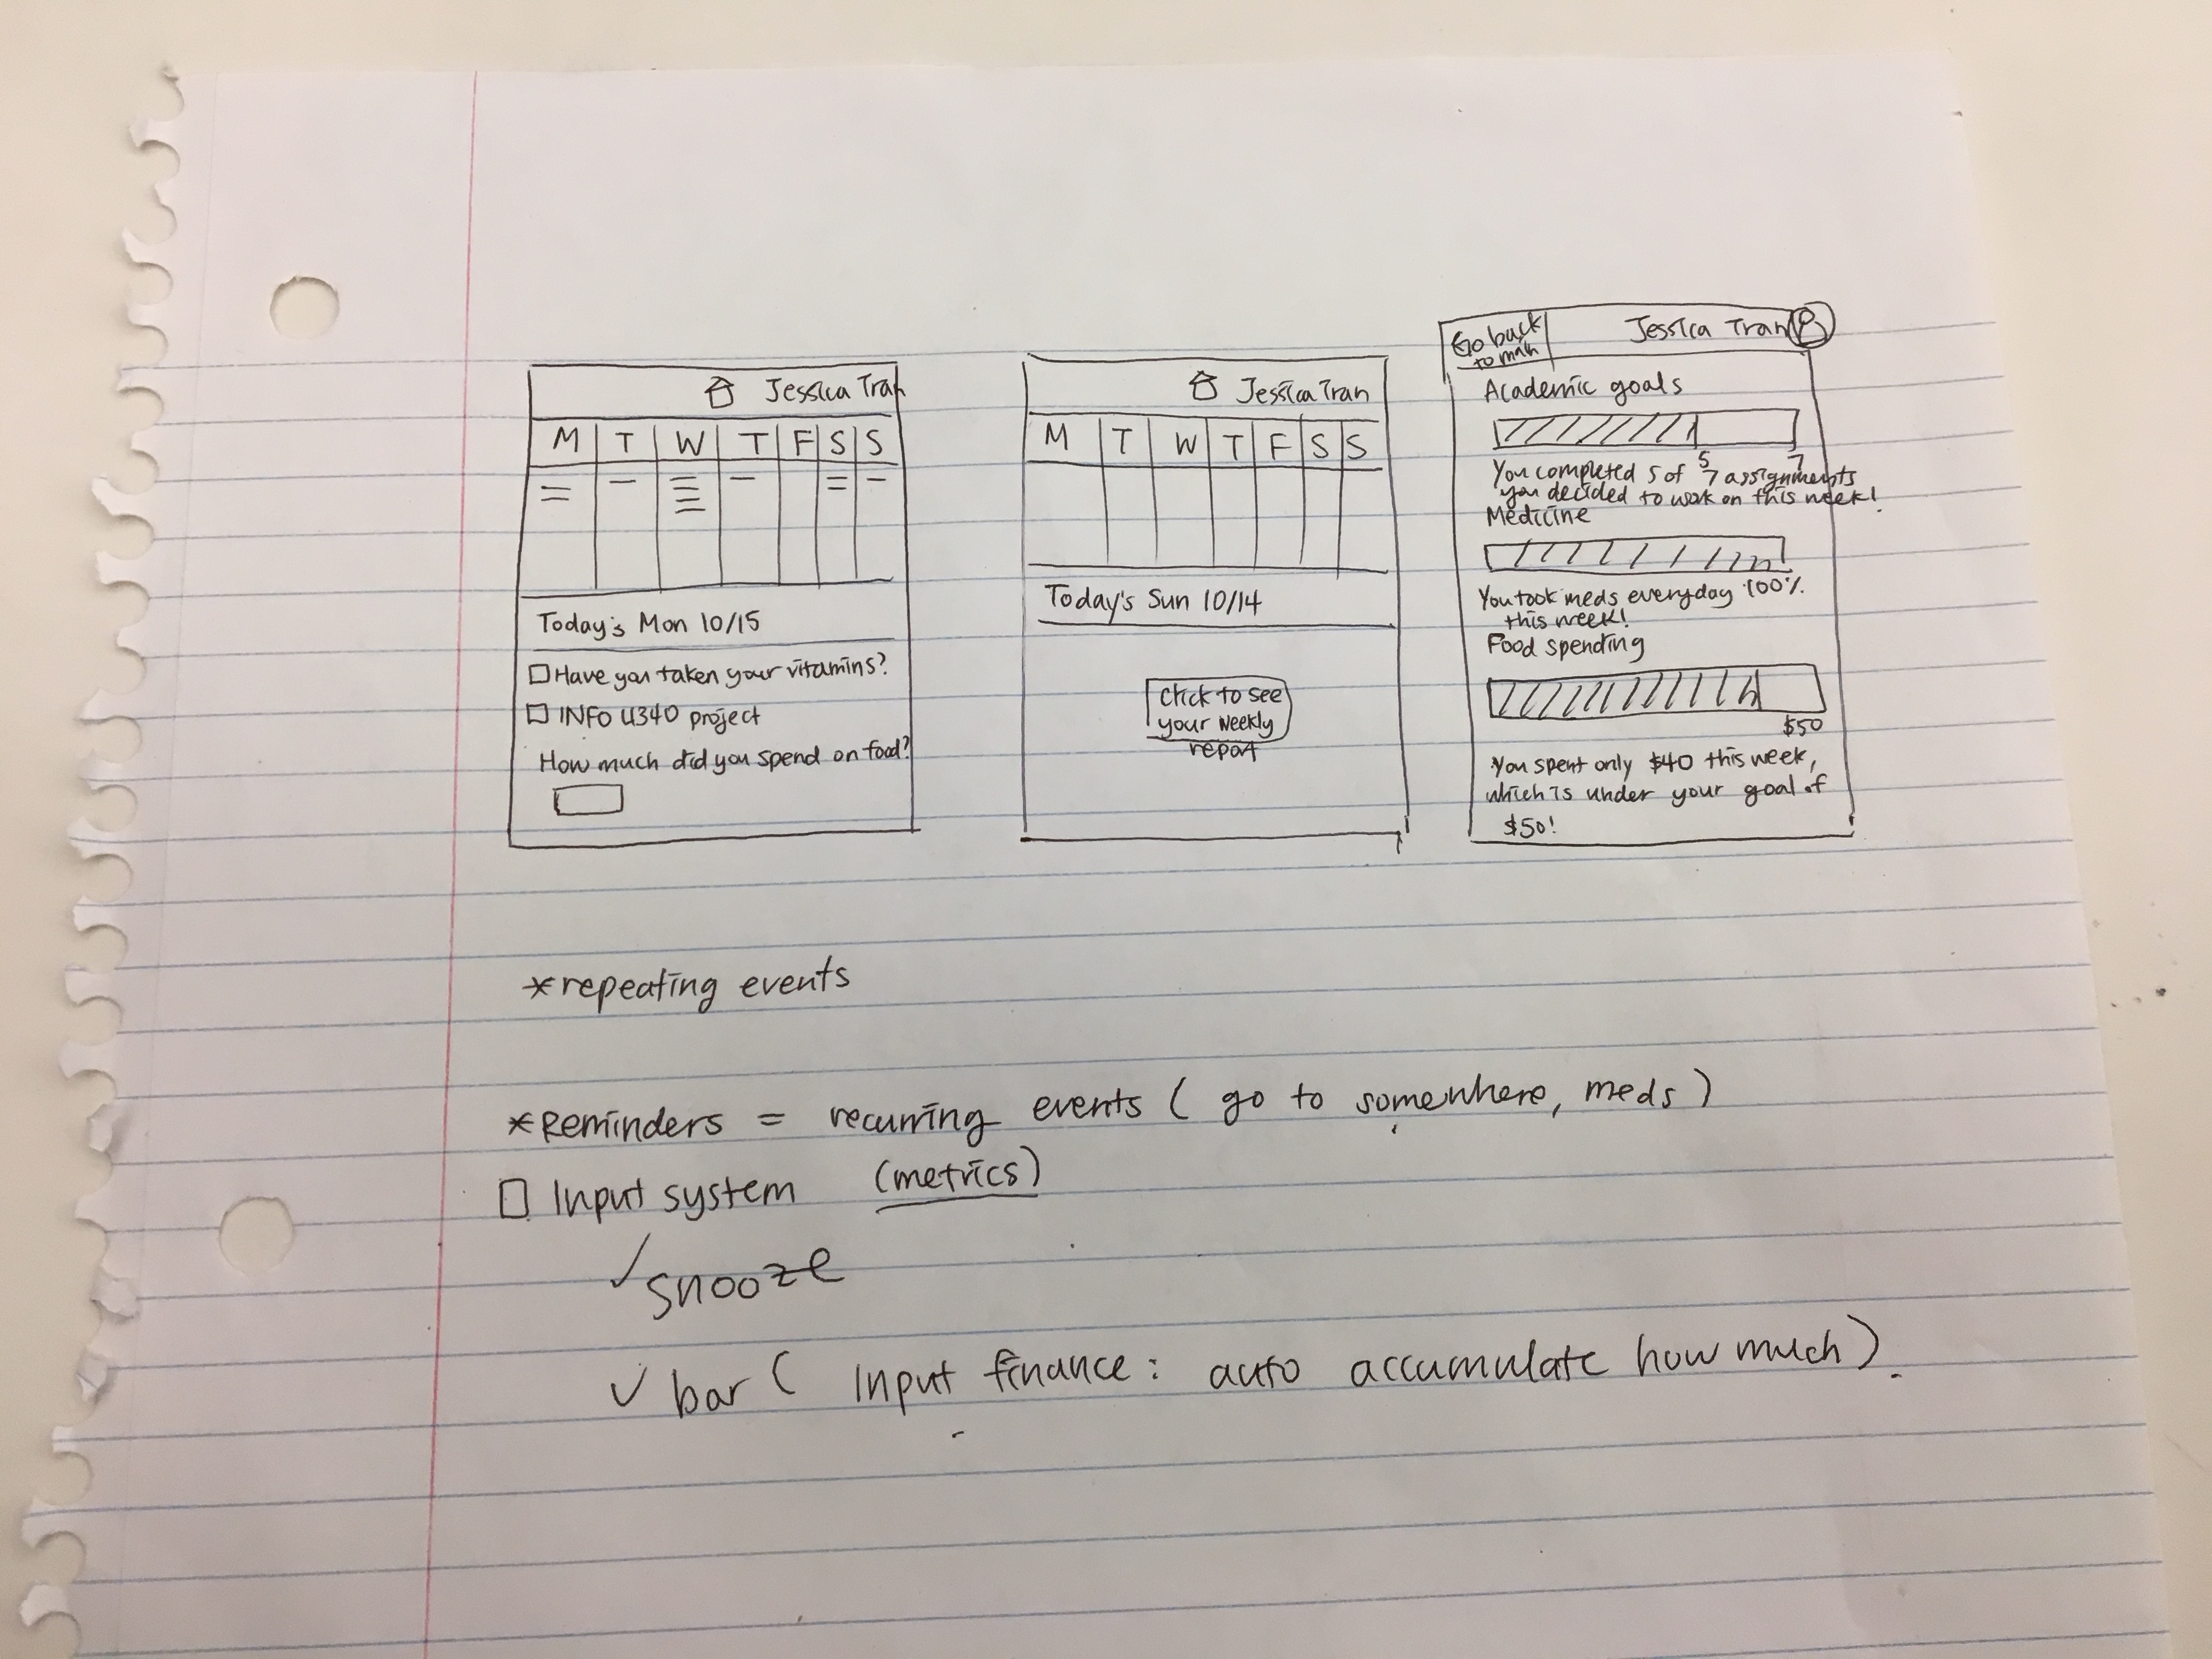 Jessica Tran
M T W T F S S
Today's Mon 10/15
Have you taken your vitamins?
INFO 4340 project
How much did you spend on food?
Jessica Tran
M T W T F S S
Today's Sun 10/14
Click to see
your weekly
report
Go back
to main
Jessica Tran
Academic goals
5 7
You completed 5 of 7 assignments
you decided to work on this week!
Medicine
You took meds everyday 100%
this week!
Food spending
$50
You spent only $40 this week,
which is under your goal of
$50!
*repeating events
*Reminders = recurring events (go to somewhere, meds)
Input system (metrics)
✓ snooze
✓ bar (Input finance: auto accumulate how much).